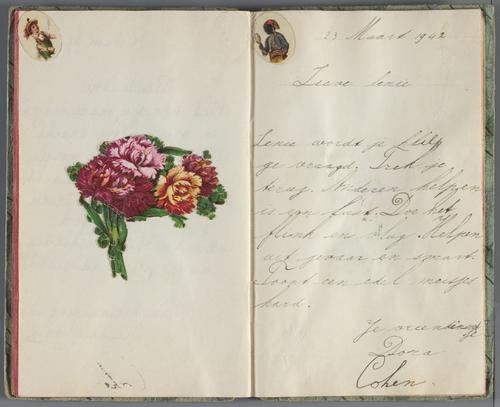 23 Maart 1942
Lieve Lenie
Lenie wordt je hulp
ge vraagd. Trek je
terug. Anderen helpen
is een lust. Doe het
flink en vlug. Helpen
uit gevaar en smart.
Toont een edel meisjes
hand.
Je vriendinnetje
Dora
Cohen.